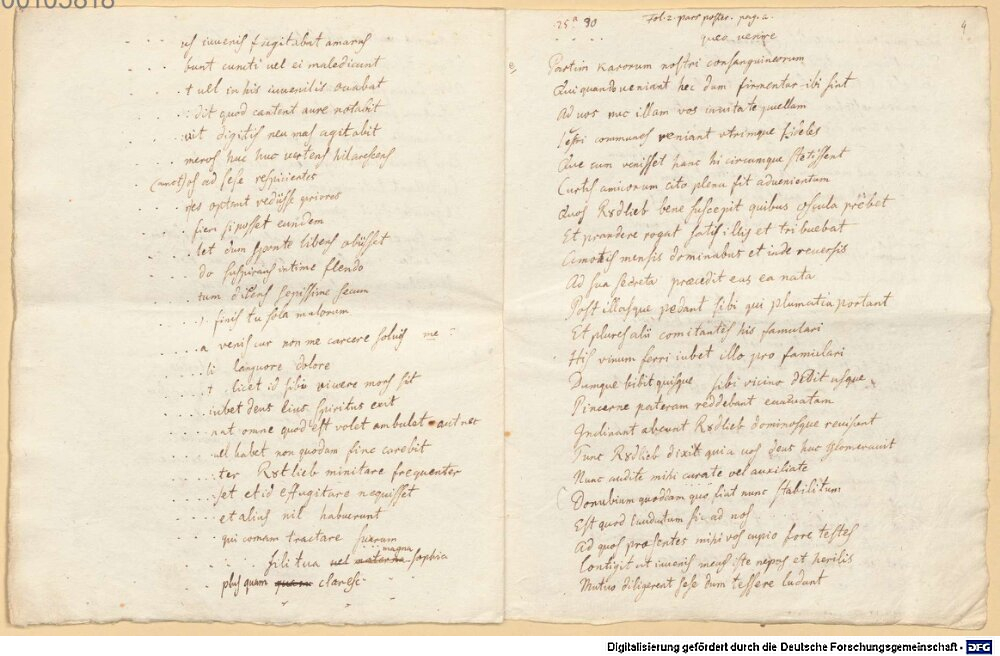 00105818
. . . . us iuvenis fugitabat amarus
. . . . bunt cuncti vel ei maledicunt
. . . . t vel in his iuvenilis ovabat
. . . . dit quod cantent aure notabit
. . . . uit digitis neu mas agitabit
. . . . meros huc huc vertens hilarescens
(cunct)os ad sese respicientes
. . . . nes optant vedisse priores
. . . . fieri si posset eundem
. . . . tet dum sponte libens abisset
. . . . do suspirans intime flendo
. . . . tum dicens sepissime secum
. . . . finis tu sola malorum
. . . . a venis cur non me carcere solvis me
. . . . ti languore dolore
. . . . t licet id sibi vivere mors sit
. . . . iubet deus eius spiritus exit
. . . . nat omne quod est volet ambulet aut net
. . . . vel habet non quodam fine carebit
. . . . ter Rutlieb minitare frequenter
. . . . set et id effugitare nequisset
. . . . et alius nil habuerunt
. . . . qui comam tractare suorum
fili tua vel materna magna sophia
plus quam quam claresc.
25ª 30 Fol. 2. pars poster. pag. a. 9
queo venire
Partim Karorum nostri consanguineorum
Qui quando veniant hec dum firmentur ibi sint
Ad vos nuc illam vos invitate puellam
Vestri communes veniant utrimque fideles
Que cum venisset hanc hi circumque stetissent
Curtis amicorum cito plena fit advenientum
Quos Rŏdlieb bene suscepit quibus oscula prebet
Et prandere rogat satis illis et tribuebat
Amotis mensis dominabus et inde reversis
Ad sua secreta precedit eas ea nata
Post illasque pedant sibi qui plumatia portant
Et plures alii comitantes his famulari
His vinum ferri iubet illo pro famulari
Dumque bibit quisque sibi vicino dedit usque
Pincerne pateram reddebant evacuatam
Inclinant abeunt Rŏdlieb dominosque revisunt
Tunc Rŏdlieb dixit quia vos deus huc glomeravit
Nunc audite mihi curate vel auxiliate
Donubium quoddam quo fiat nunc stabilitum
Est quod laudatum sic ad nos
Ad quos presentes mihi vos cupio fore testes
Contigit ut iuvenis meus iste nepos et herilis
Mutuo diligerent sese dum tessere ludunt
Digitalisierung gefördert durch die Deutsche Forschungsgemeinschaft - DFG